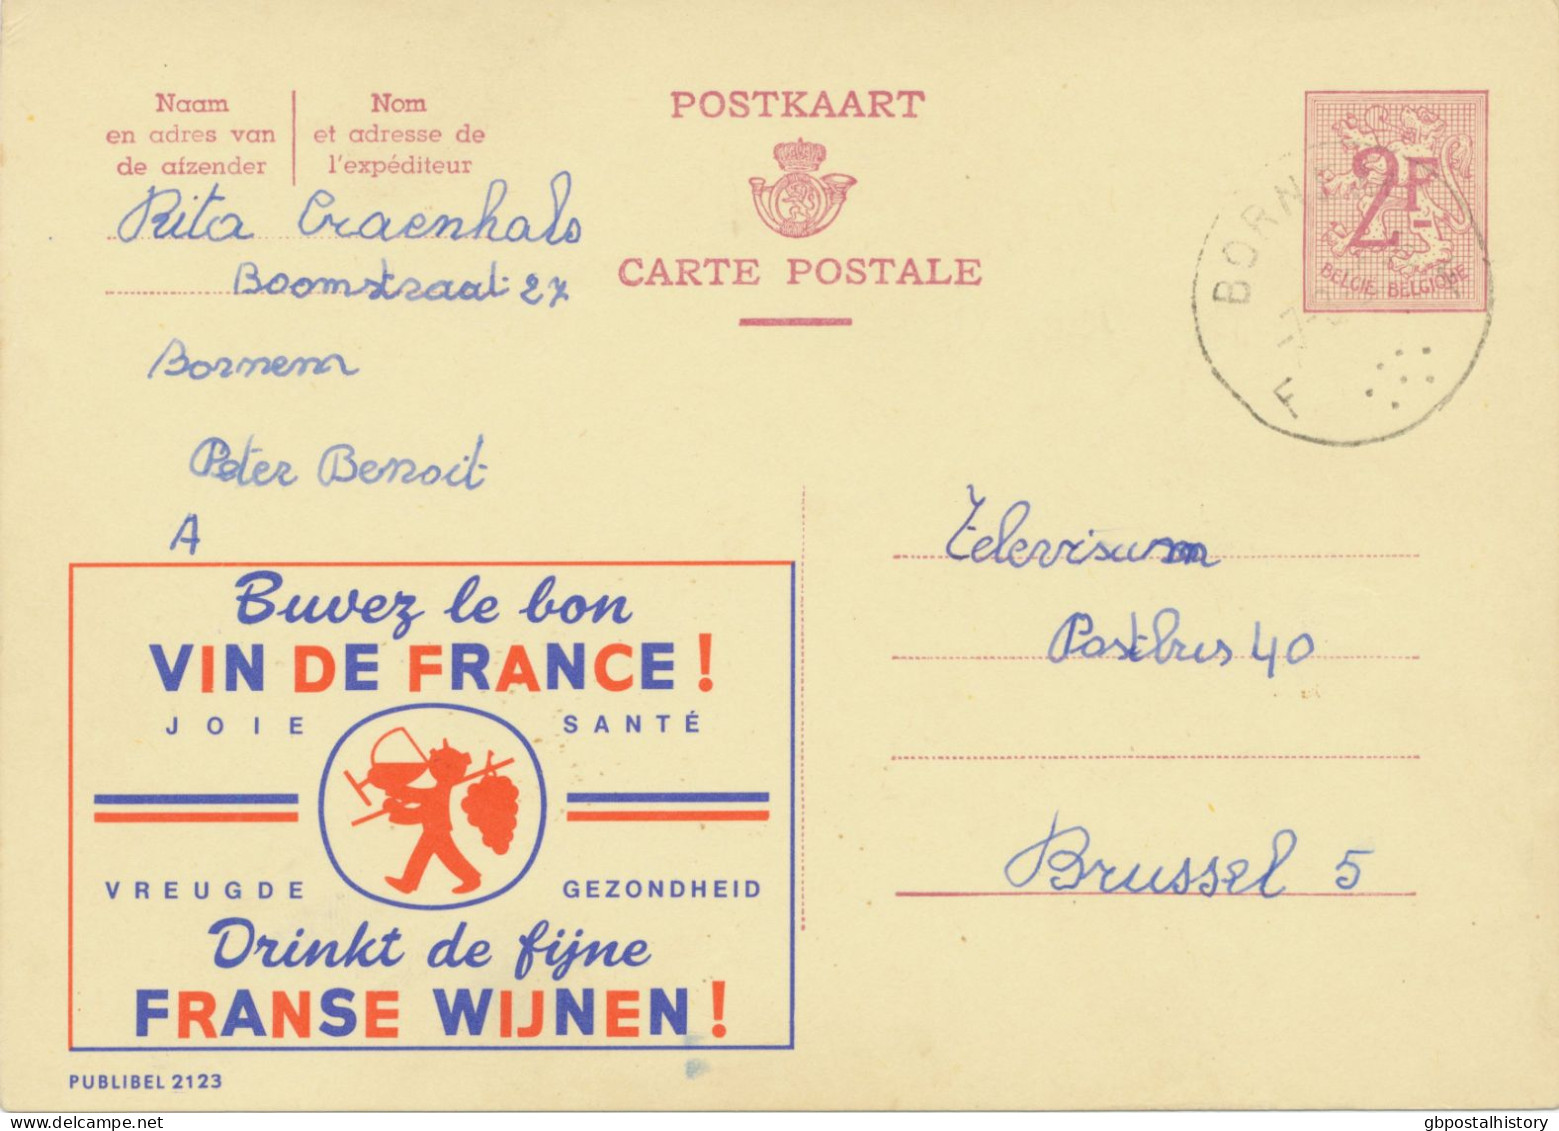 Naam
en adres van
de afzender
Nom
et adresse de
l'expéditeur
POSTKAART
CARTE POSTALE
2F
BELGIE BELGIQUE
BORNEM
F
Rita Craenhals
Boomstraat 27
Bornem
Peter Benoit
A
Televisum
Postbus 40
Brussel 5
Buvez le bon
VIN DE FRANCE !
JOIE SANTÉ
VREUGDE GEZONDHEID
Drinkt de fijne
FRANSE WIJNEN !
PUBLIBEL 2123
gbpostalhistory